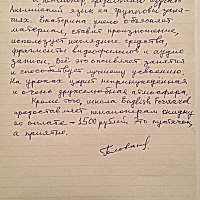 Английский язык на групповых заня-
тиях. Екатерина умело объясняет
материал, ставит произношение,
использует наглядные средства,
фрагменты видеофильмов и аудио
записи. Всё это оживляет занятия
и способствует лучшему усвоению.
На уроках царит непринуждённая
и очень дружелюбная атмосфера.
Кроме того, школа English Forward
предоставляет пенсионерам скидку
по оплате - 1500 рублей. Это
а приятно.